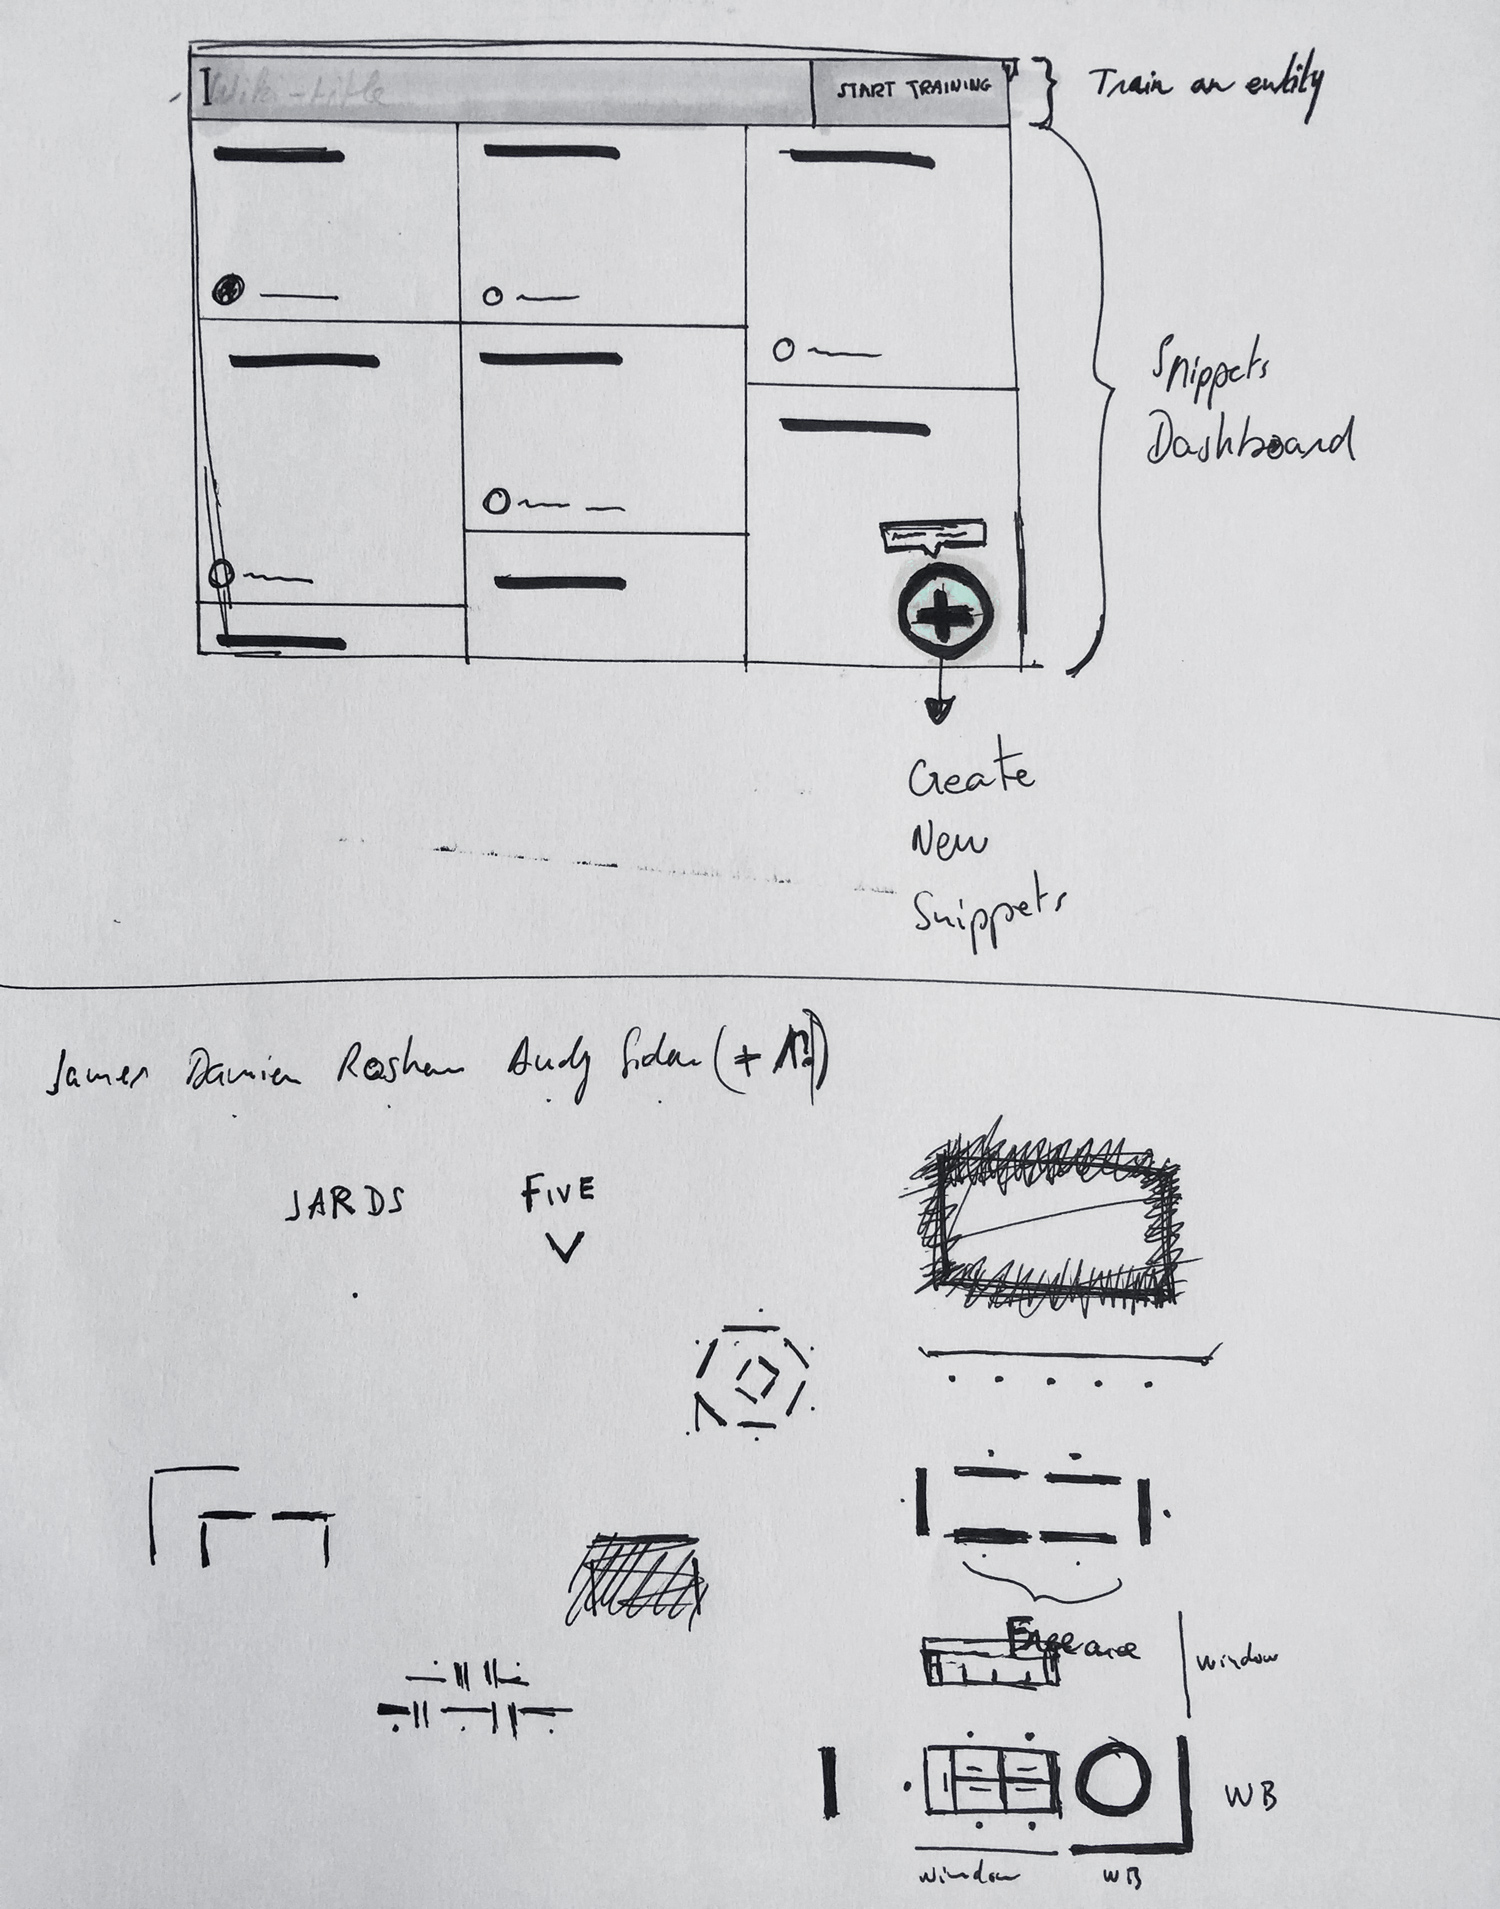 Wiki-title
START TRAINING
Train an entity
Snippets
Dashboard
Create
New
Snippets
James Damien Roshan Andy
JARDS
FIVE
window
WB
window
WB